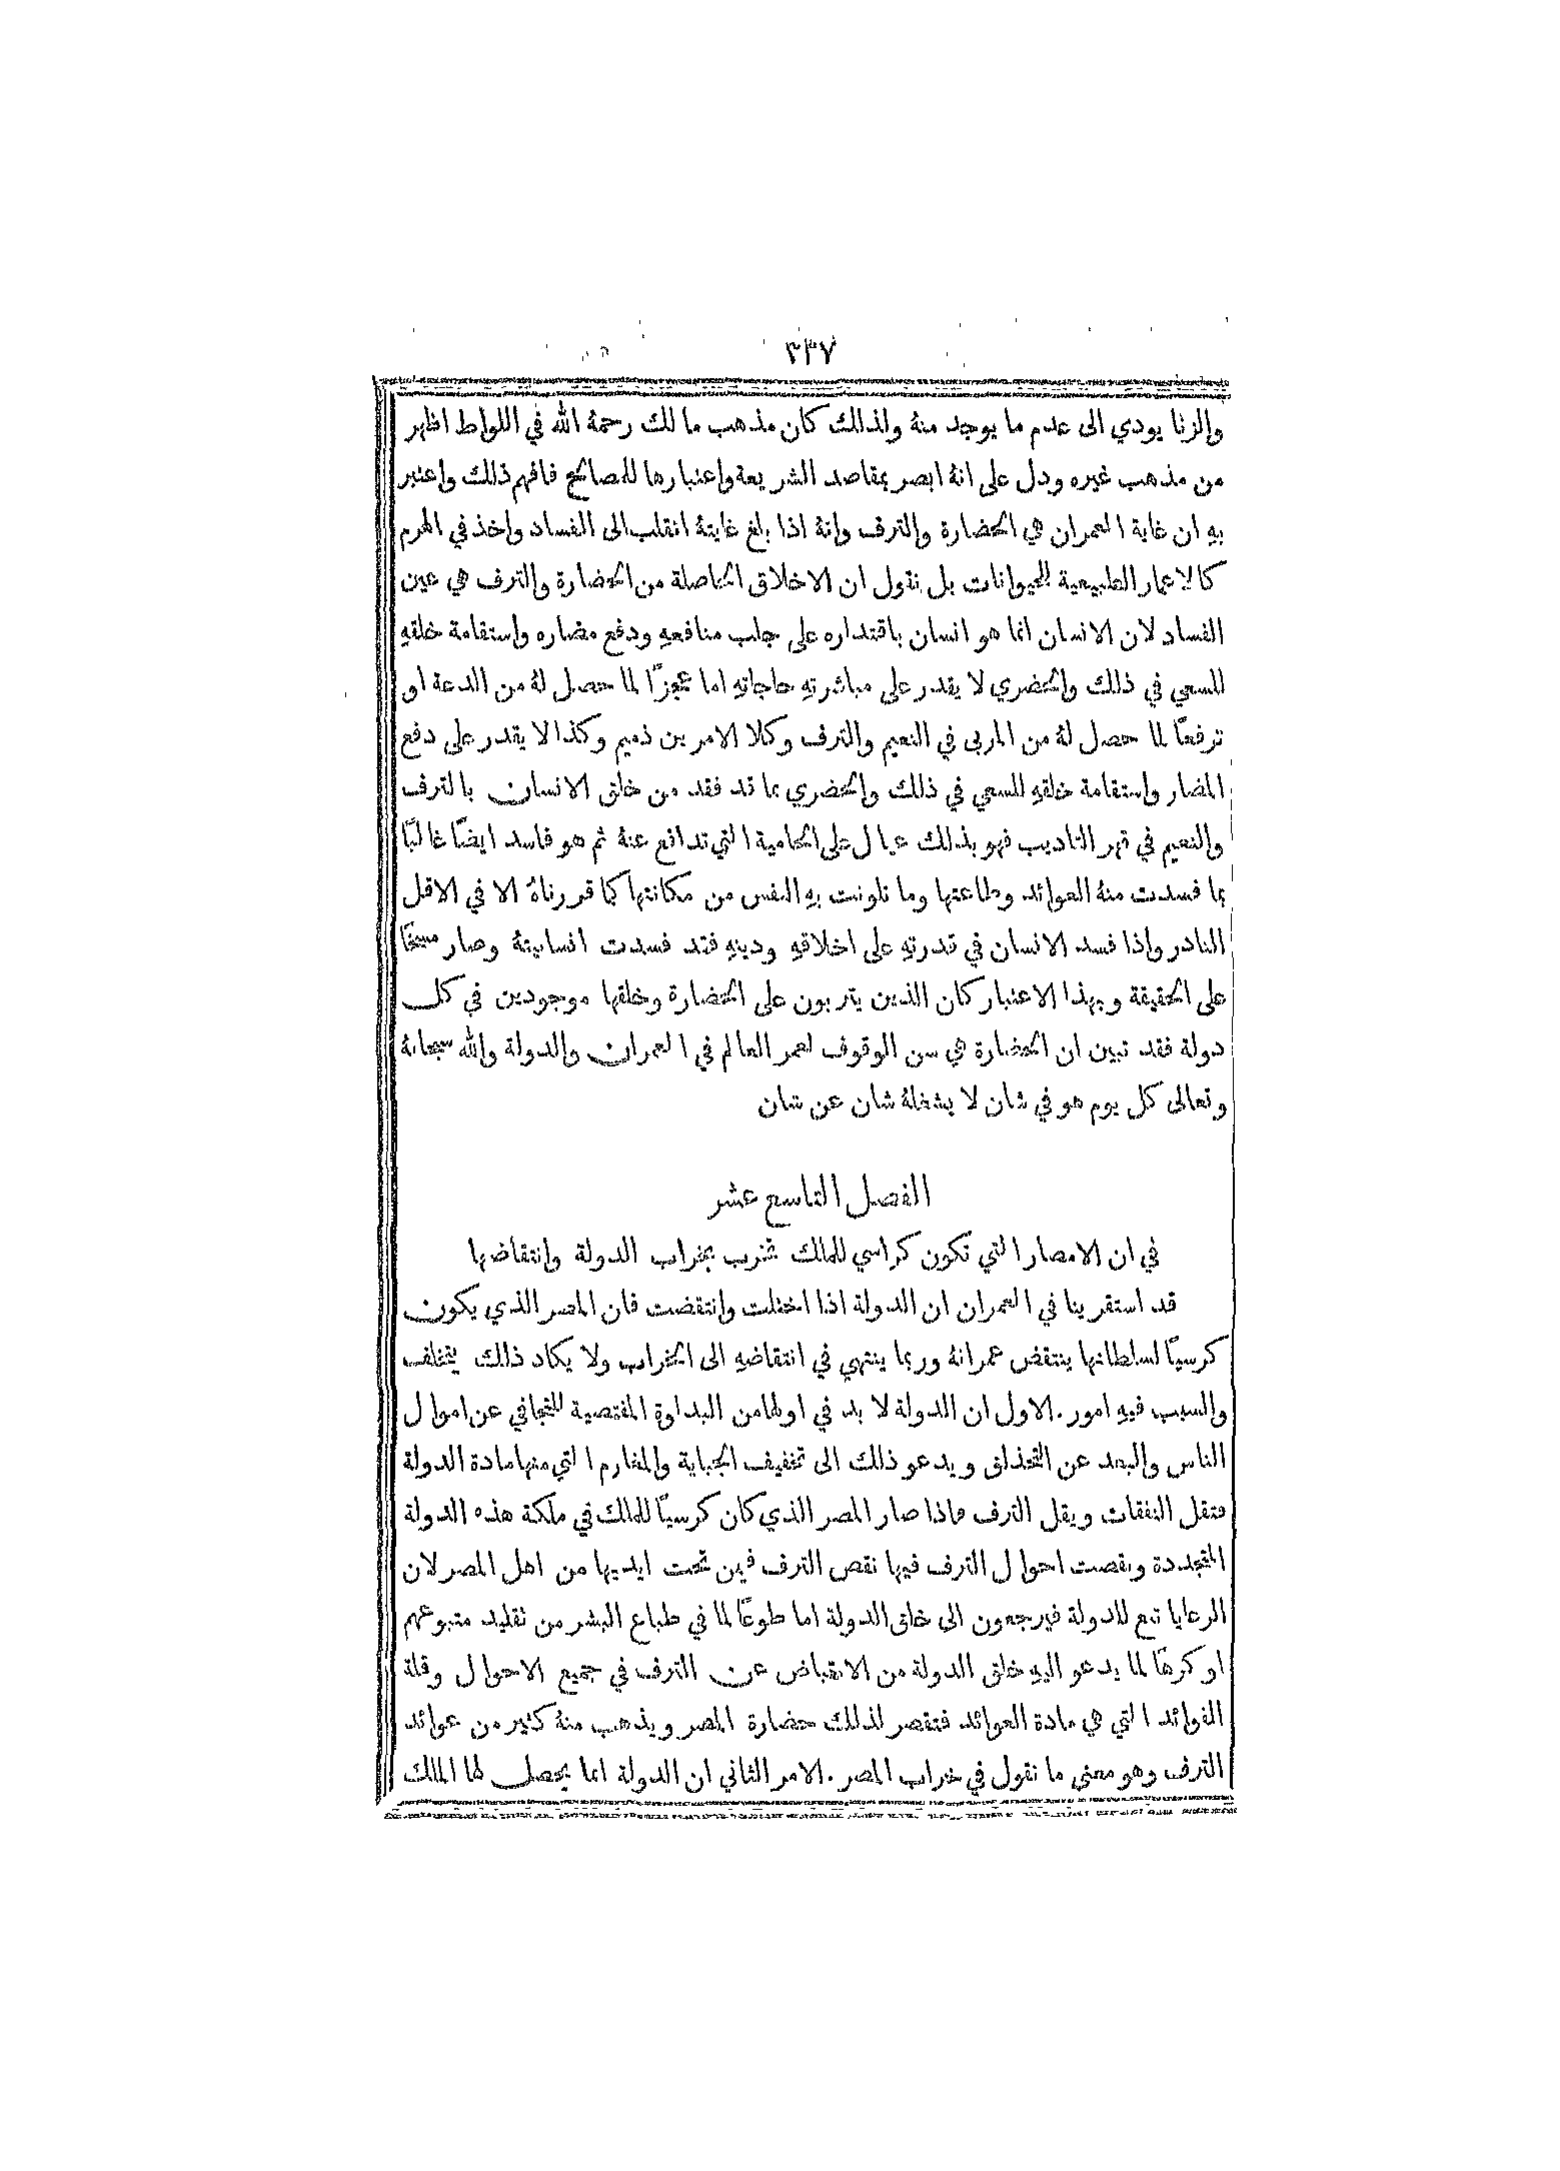 ٣٣٧
والزنا يودي الى عدم ما يوجد منهُ ولذلك كان مذهب مالك رحمهُ الله في اللواط اظهر
من مذهب غيره ودل على انهُ ابصر بمقاصد الشريعة واعتبارها للمصالح فافهم ذلك واعتبر
بهِ ان غاية العمران هي الحضارة والترف وانهُ اذا بلغ غايتهُ انقلب الى الفساد واخذ في الهرم
كالاعمار الطبيعية للحيوانات بل نقول ان الاخلاق الحاصلة من الحضارة والترف هي عين
الفساد لان الانسان انما هو انسان باقتداره على جلب منافعهِ ودفع مضاره واستقامة خلقهِ
للسعي في ذلك والحضري لا يقدر على مباشرتهِ حاجاتهِ اما عجزًا لما حصل لهُ من الدعة او
ترفعًا لما حصل لهُ من المربى في النعيم والترف وكلا الامرين ذميم وكذا لا يقدر على دفع
المضار واستقامة خلقهِ للسعي في ذلك والحضري بما قد فقد من خلق الانسان بالترف
والنعيم في قهر التاديب فهو بذلك عيال على الحامية التي تدافع عنهُ ثم هو فاسد ايضًا غالبًا
بما فسدت منهُ العوائد وطاعتها وما تلونت بهِ النفس من مكانتها كما قررناهُ الا في الاقل
النادر واذا فسد الانسان في قدرتهِ على اخلاقهِ ودينهِ فقد فسدت انسانيتهُ وصار مسخًا
على الحقيقة وبهذا الاعتبار كان الذين يتربون على الحضارة وخلقها موجودين في كل
دولة فقد تبين ان الحضارة هي سن الوقوف لعمر العالم في العمران والدولة والله سبحانهُ
وتعالى كل يوم هو في شان لا يشغلهُ شان عن شان
الفصل التاسع عشر
في ان الامصار التي تكون كراسي للملك تخرب بخراب الدولة وانتقاضها
قد استقرينا في العمران ان الدولة اذا اختلت وانتقضت فان المصر الذي يكون
كرسيًا لسلطانها ينتقض عمرانهُ وربما ينتهي في انتقاضهِ الى الخراب ولا يكاد ذلك يتخلف
والسبب فيهِ امور. الاول ان الدولة لا بد في اولها من البداوة المقتضية للتجافي عن اموال
الناس والبعد عن التحذلق ويدعو ذلك الى تخفيف الجباية والمغارم التي منها مادة الدولة
فتقل النفقات ويقل الترف فاذا صار المصر الذي كان كرسيًا للملك في ملكة هذه الدولة
المتجددة ونقصت احوال الترف فيها نقص الترف فيمن تحت ايديها من اهل المصر لان
الرعايا تبع للدولة فيرجعون الى خلق الدولة اما طوعًا لما في طباع البشر من تقليد متبوعهم
او كرهًا لما يدعو اليهِ خلق الدولة من الانقباض عن الترف في جميع الاحوال وقلة
الفوائد التي هي مادة العوائد فتقصر لذلك حضارة المصر ويذهب منهُ كثير من عوائد
الترف وهو معنى ما نقول في خراب المصر. الامر الثاني ان الدولة انما يحصل لها الملك